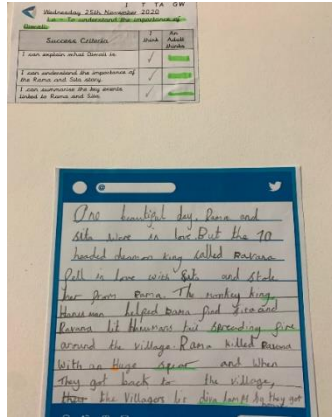 I T TA GW
Wednesday 25th November 2020
Lo - To understand the importance of
Diwali.
Success Criteria I think An Adult thinks
I can explain what Diwali is.
I can understand the importance of
the Rama and Sita story.
I can summarise the key events
linked to Rama and Sita.
@
One beautiful day, Rama and
Sita were in love. But the 10
headed deamon king called Ravana
Fell in love with Sita and stole
her from Rama. The monkey king,
Hanuman helped Rama find
Ravana lit Hanumans tail spreading fire
around the village. Rama killed Ravana
With an huge spear and when
They got back to the village,
the Villagers lit diva by they got